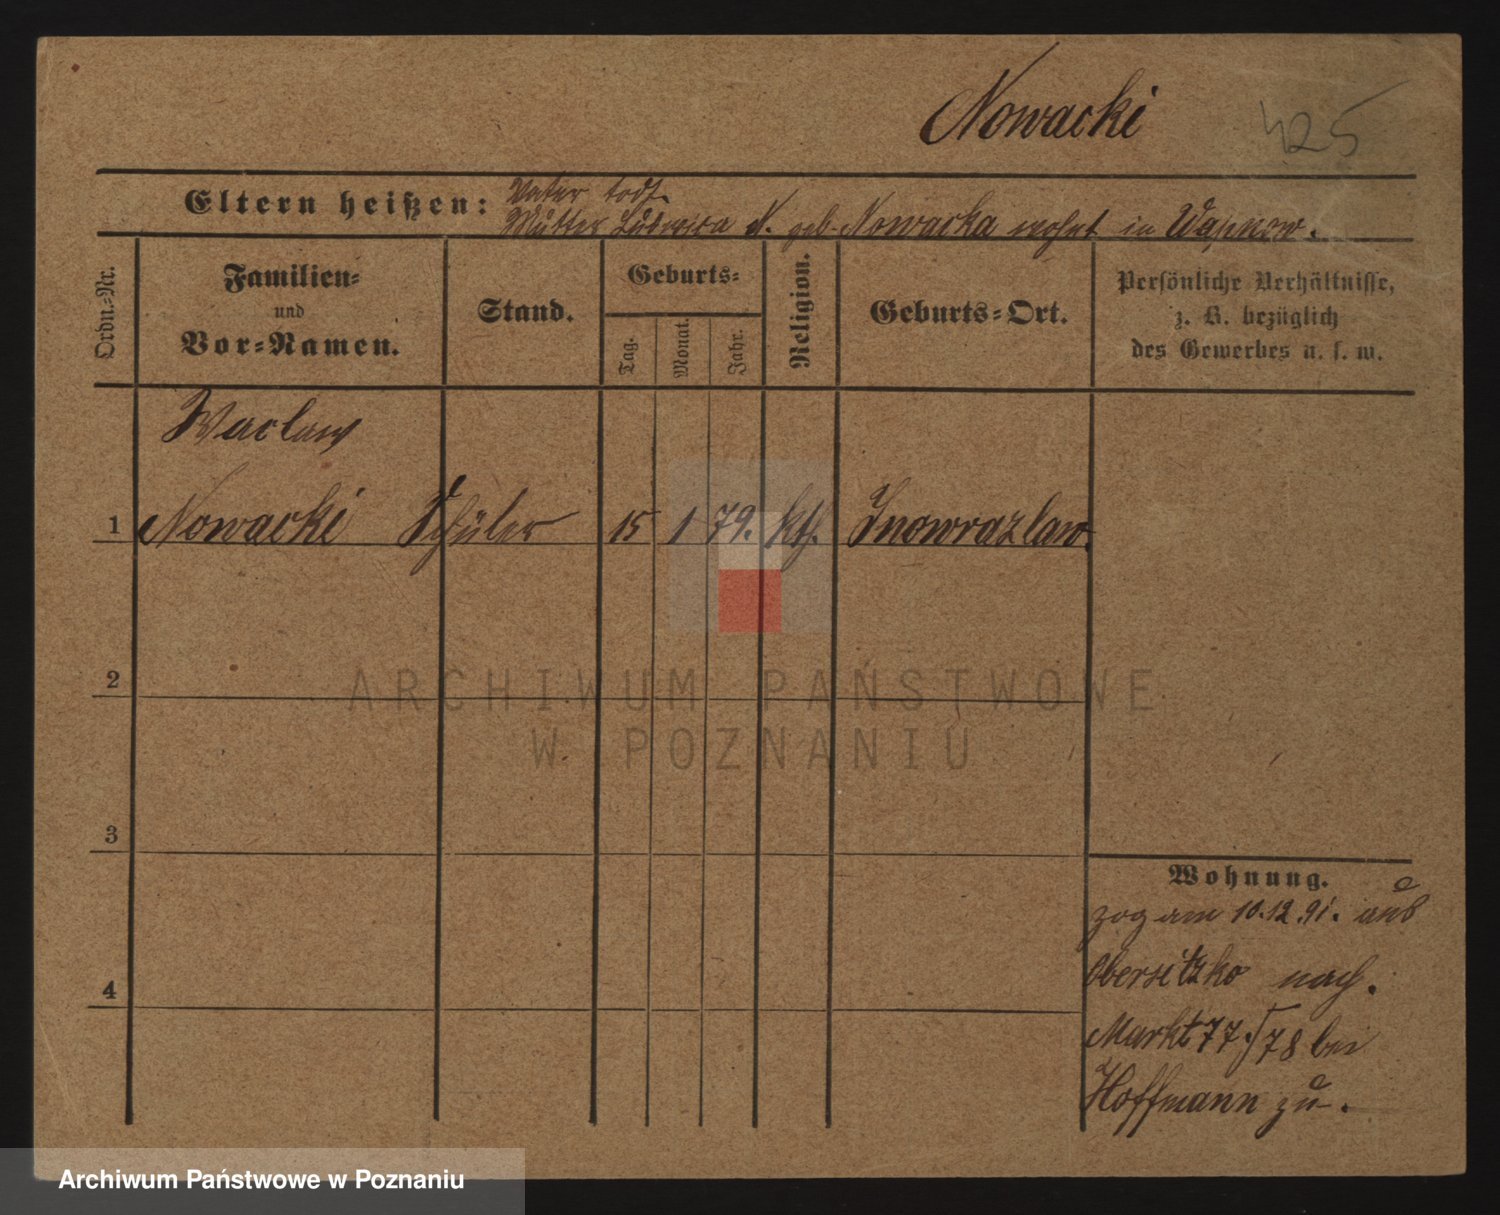 Nowacki 425
Eltern heißen: Vater todt.
Mutter Ludwica N. geb. Nowacka wohnt in Wapnow.
Ordn.-Nr.
Familien-
und
Vor-Namen.
Stand.
Geburts-
Tag.
Monat.
Jahr.
Religion.
Geburts-Ort.
Persönliche Verhältnisse,
z. B. bezüglich
des Gewerbes u. s. w.
Waclaw
1 Nowacki Schüler 15 1 79. kth. Inowrazlaw.
2
3
4
Wohnung.
zog am 10.12.91. aus
Obersitzko nach.
Markt 77./78 bei
Hoffmann zu.
ARCHIWUM PAŃSTWOWE
W POZNANIU
Archiwum Państwowe w Poznaniu